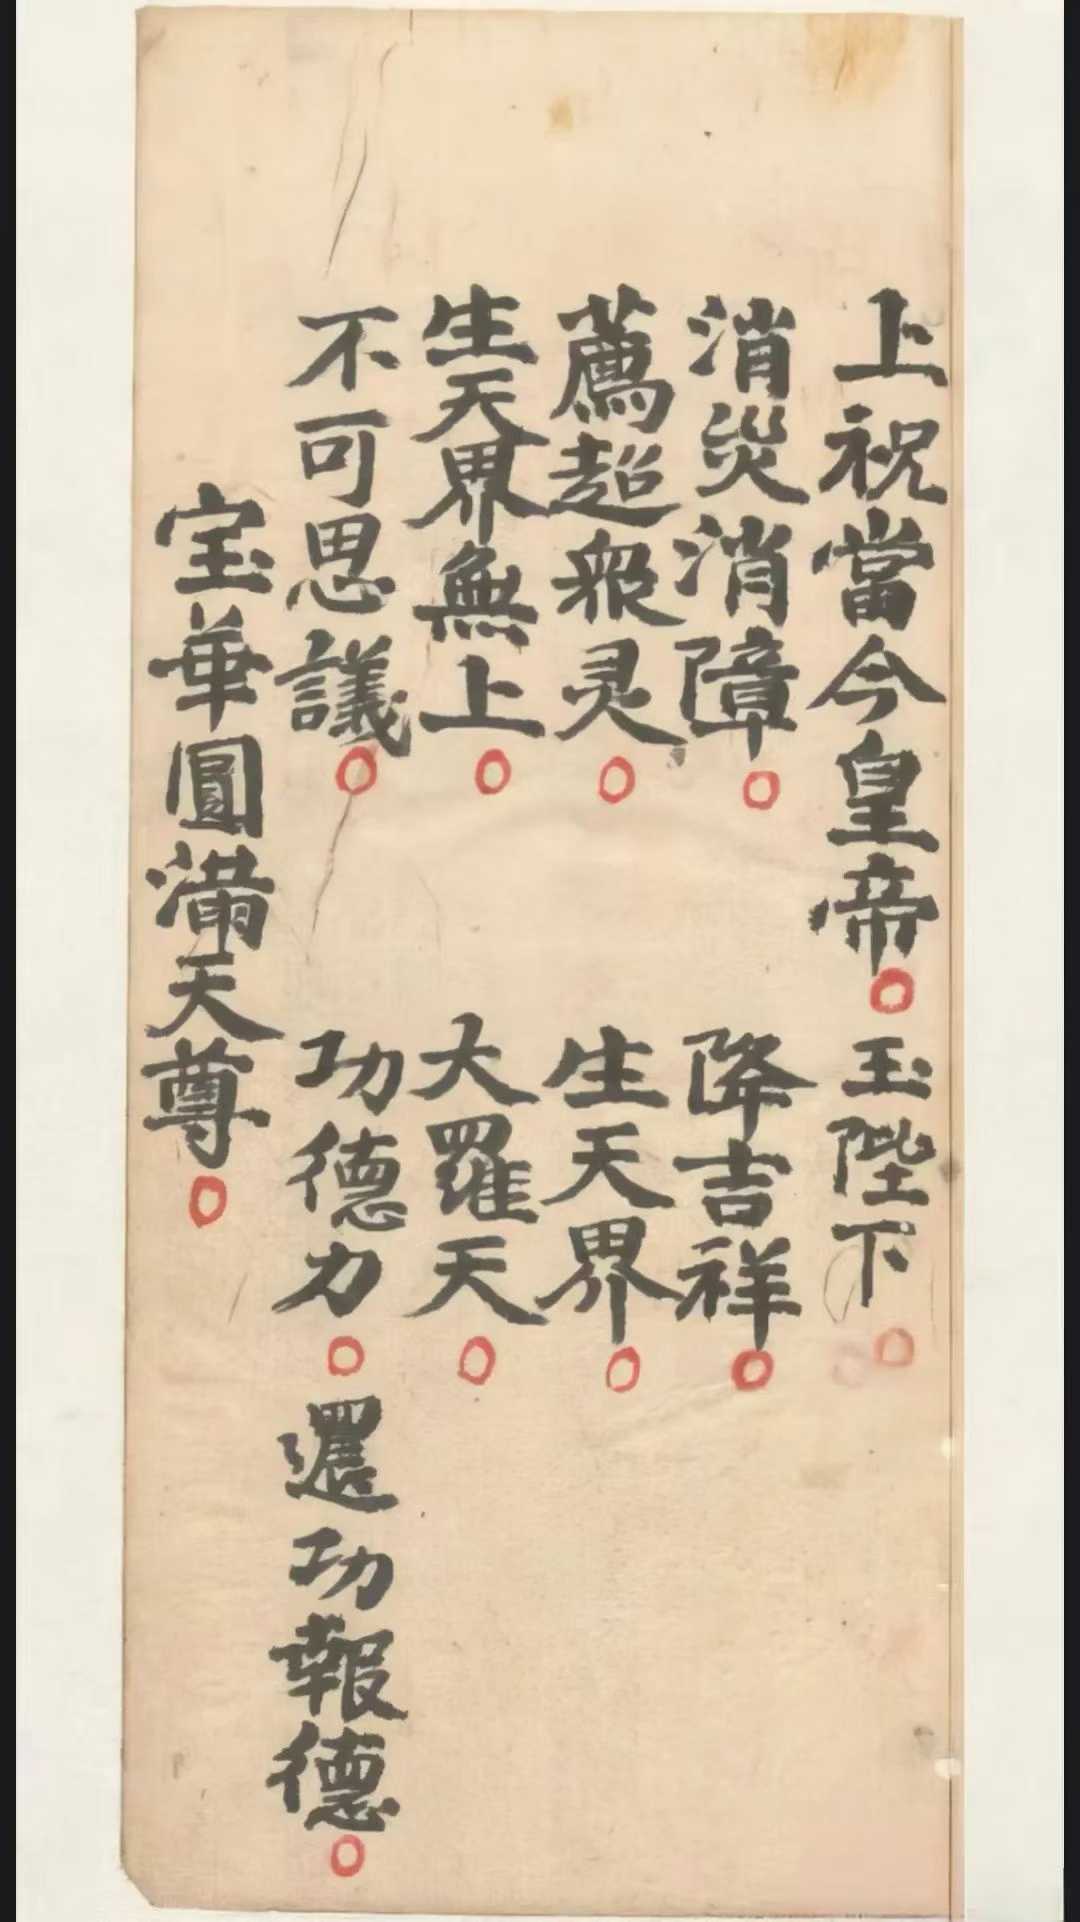 上祝當今皇帝○玉陛下○
消災消障○降吉祥○
薦超衆灵○生天界○
生天界無上○大羅天○
不可思議○功德力○還功報德○
宝華圓滿天尊○